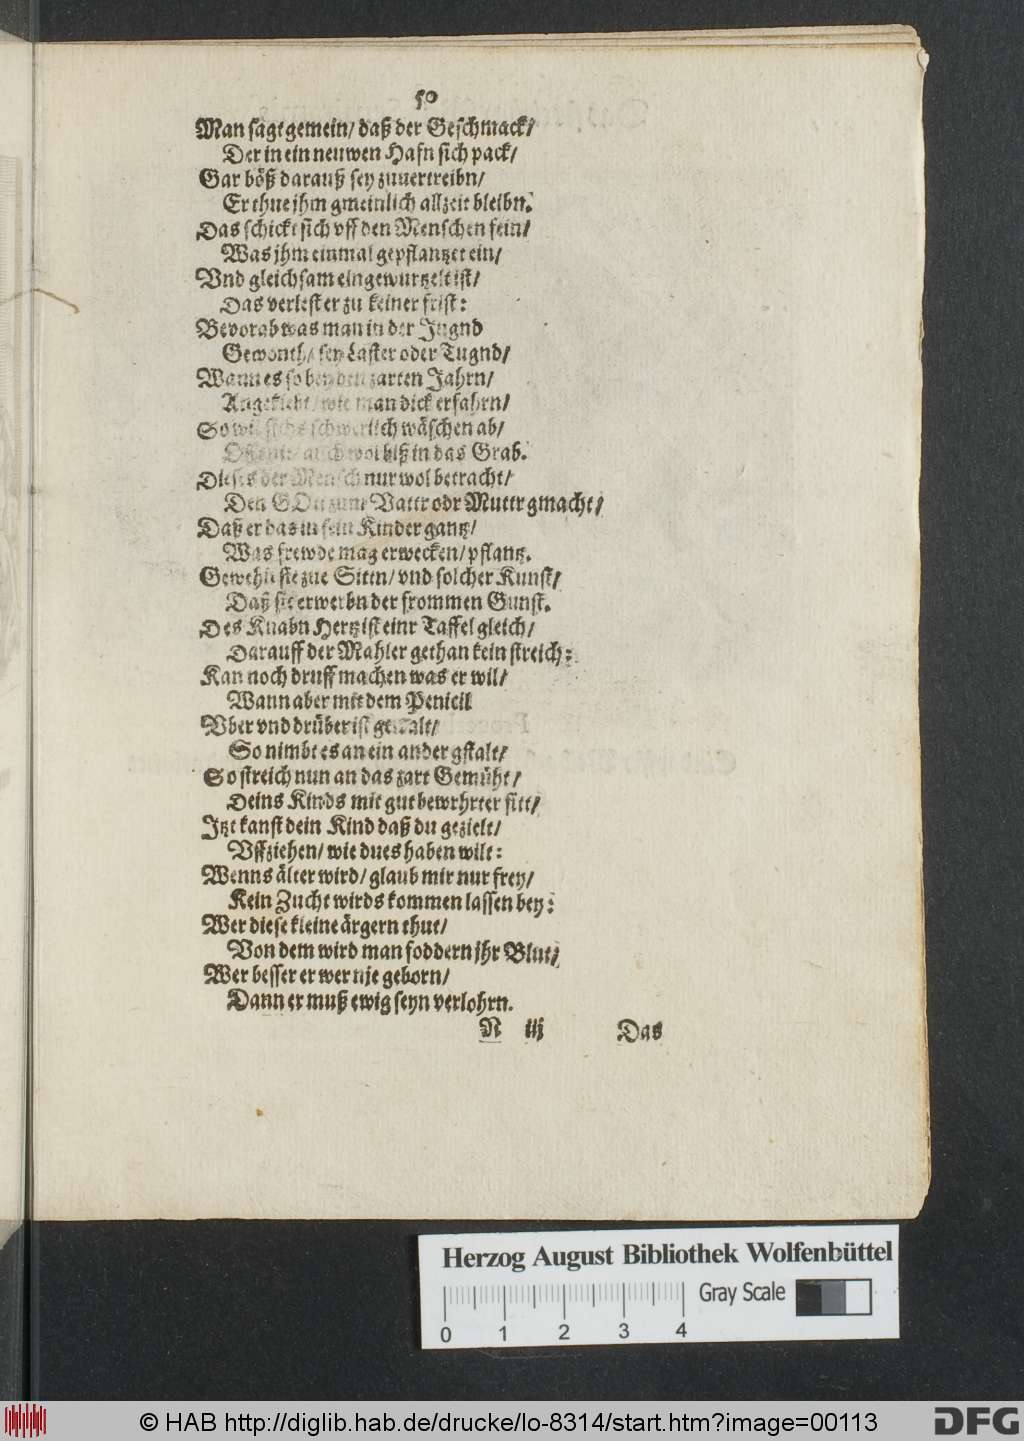 50
Man sagt gemein/ daß der Geschmack/
Der in ein neuwen Hafn sich pack/
Gar böß darauß sey zuuertreibn/
Er thue jhm gmeinlich allzeit bleibn.
Das schickt sich vff den Menschen fein/
Was jhm einmal gepflantzet ein/
Vnd gleichsam eingewurtzelt ist/
Das verlest er zu keiner frist:
Bevorab was man in der Jugnd
Gewonth/ sey Laster oder Tugnd/
Wann es so bey den zarten Jahrn/
Angeklebt/ wie man dick erfahrn/
So wil sichs schwerlich wäschen ab/
auch wol biß in das Grab.
Dieses der Mensch nur wol betracht/
Den GOtt zum Vattr odr Muttr gmacht/
Daß er das in sein Kinder gantz/
Was frewde mag erwecken/ pflantz.
Gewehn sie zue Sittn/ vnd solcher Kunst/
Daß sie erwerbn der frommen Gunst.
Des Knabn Hertz ist einr Taffel gleich/
Darauff der Mahler gethan kein streich:
Kan noch druff machen was er wil/
Wann aber mit dem Penicil
Vber vnd drüber ist gemalt/
So nimbt es an ein ander gstalt/
So streich nun an das zart Gemüht/
Deins Kinds mit gut bewrhrter sitt/
Jtzt kanst dein Kind daß du gezielt/
Vffziehen/ wie du es haben wilt:
Wenns älter wird/ glaub mir nur frey/
Kein Zucht wirds kommen lassen bey:
Wer diese kleine ärgern thut/
Von dem wird man foddern jhr Blut/
Wer besser er wer nje geborn/
Dann er muß ewig seyn verlohrn.
N iij Das
Herzog August Bibliothek Wolfenbüttel
Gray Scale
0 1 2 3 4
© HAB http://diglib.hab.de/drucke/lo-8314/start.htm?image=00113
DFG